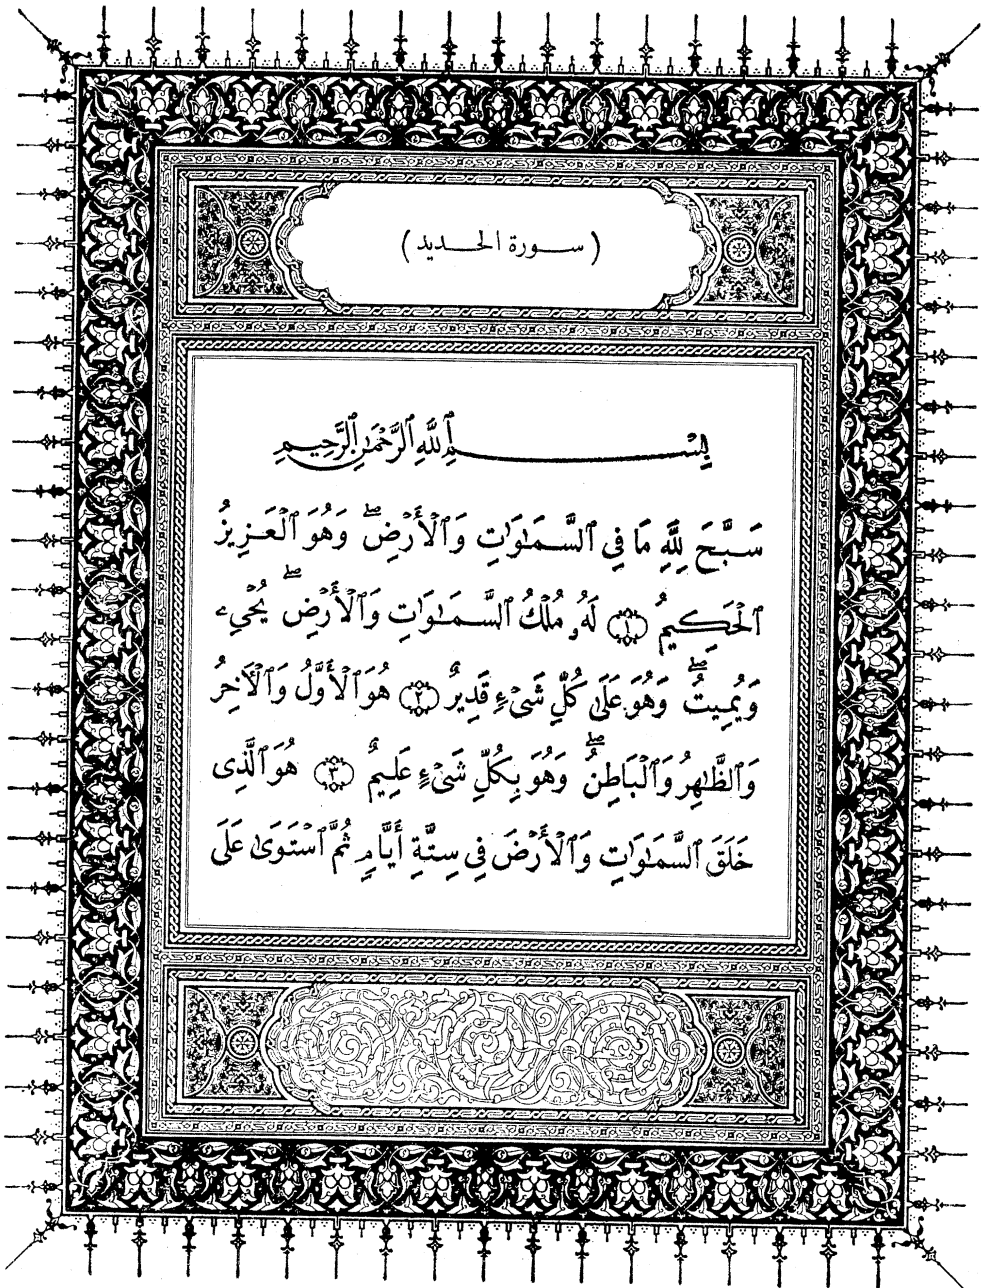 ( سورة الحديد )
بِسْمِ ٱللَّهِ ٱلرَّحْمَـٰنِ ٱلرَّحِيمِ
سَبَّحَ لِلَّهِ مَا فِي ٱلسَّمَـٰوَٰتِ وَٱلْأَرْضِ ۖ وَهُوَ ٱلْعَزِيزُ
ٱلْحَكِيمُ ﴿١﴾ لَهُۥ مُلْكُ ٱلسَّمَـٰوَٰتِ وَٱلْأَرْضِ ۖ يُحْيِۦ
وَيُمِيتُ ۖ وَهُوَ عَلَىٰ كُلِّ شَىْءٍ قَدِيرٌ ﴿٢﴾ هُوَ ٱلْأَوَّلُ وَٱلْآخِرُ
وَٱلظَّـٰهِرُ وَٱلْبَاطِنُ ۖ وَهُوَ بِكُلِّ شَىْءٍ عَلِيمٌ ﴿٣﴾ هُوَ ٱلَّذِى
خَلَقَ ٱلسَّمَـٰوَٰتِ وَٱلْأَرْضَ فِي سِتَّةِ أَيَّامٍ ثُمَّ ٱسْتَوَىٰ عَلَى